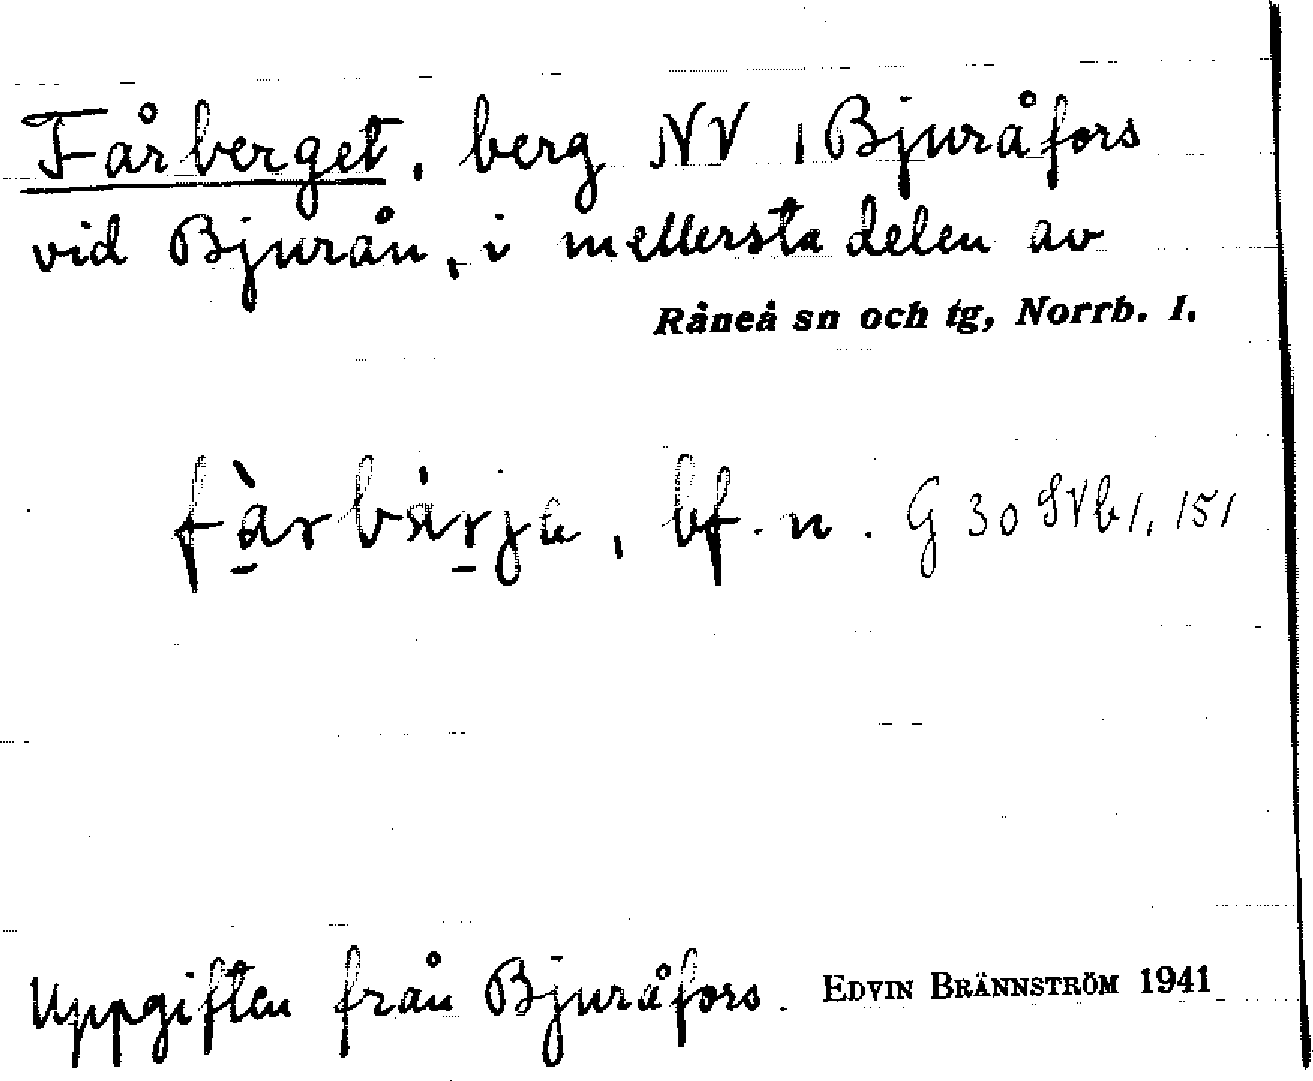 Fårberget, berg NV i Bjuråfors
vid Bjurån, i mellersta delen av
Råneå sn och tg, Norrb. l.
fàrbárja, bf. n. G 30 SVb1, 151
Uppgiften från Bjuråfors. EDVIN BRÄNNSTRÖM 1941